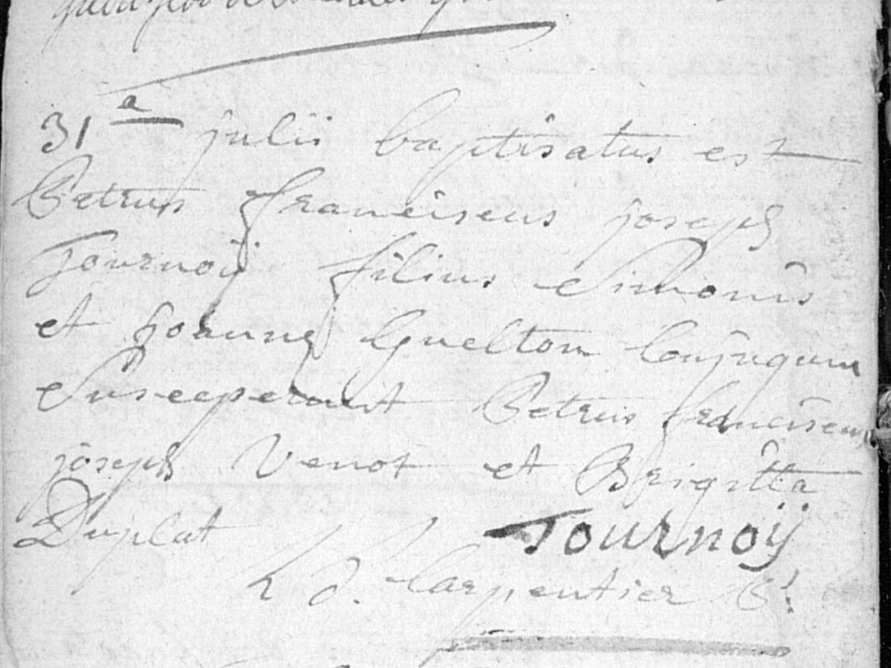 31a julii baptisatus est
Petrus franciscus joseph
Tournoij filius Simonis
et joannæ Gueltom Conjugum
Susceperunt Petrus franciscus
joseph Venot et Brigitta
Duplat Tournoÿ
L d. Carpentier